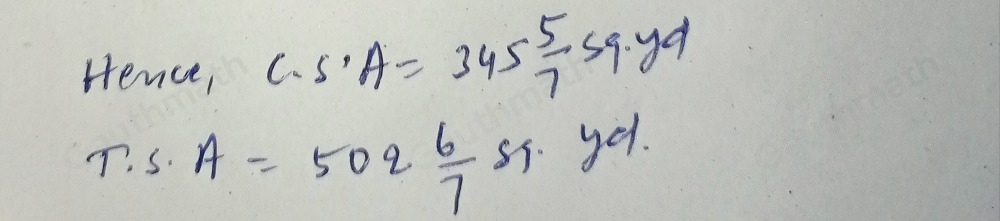 Hence, C.S.A = 345 5/7 sq.yd
T.S.A = 502 6/7 sq. yd.